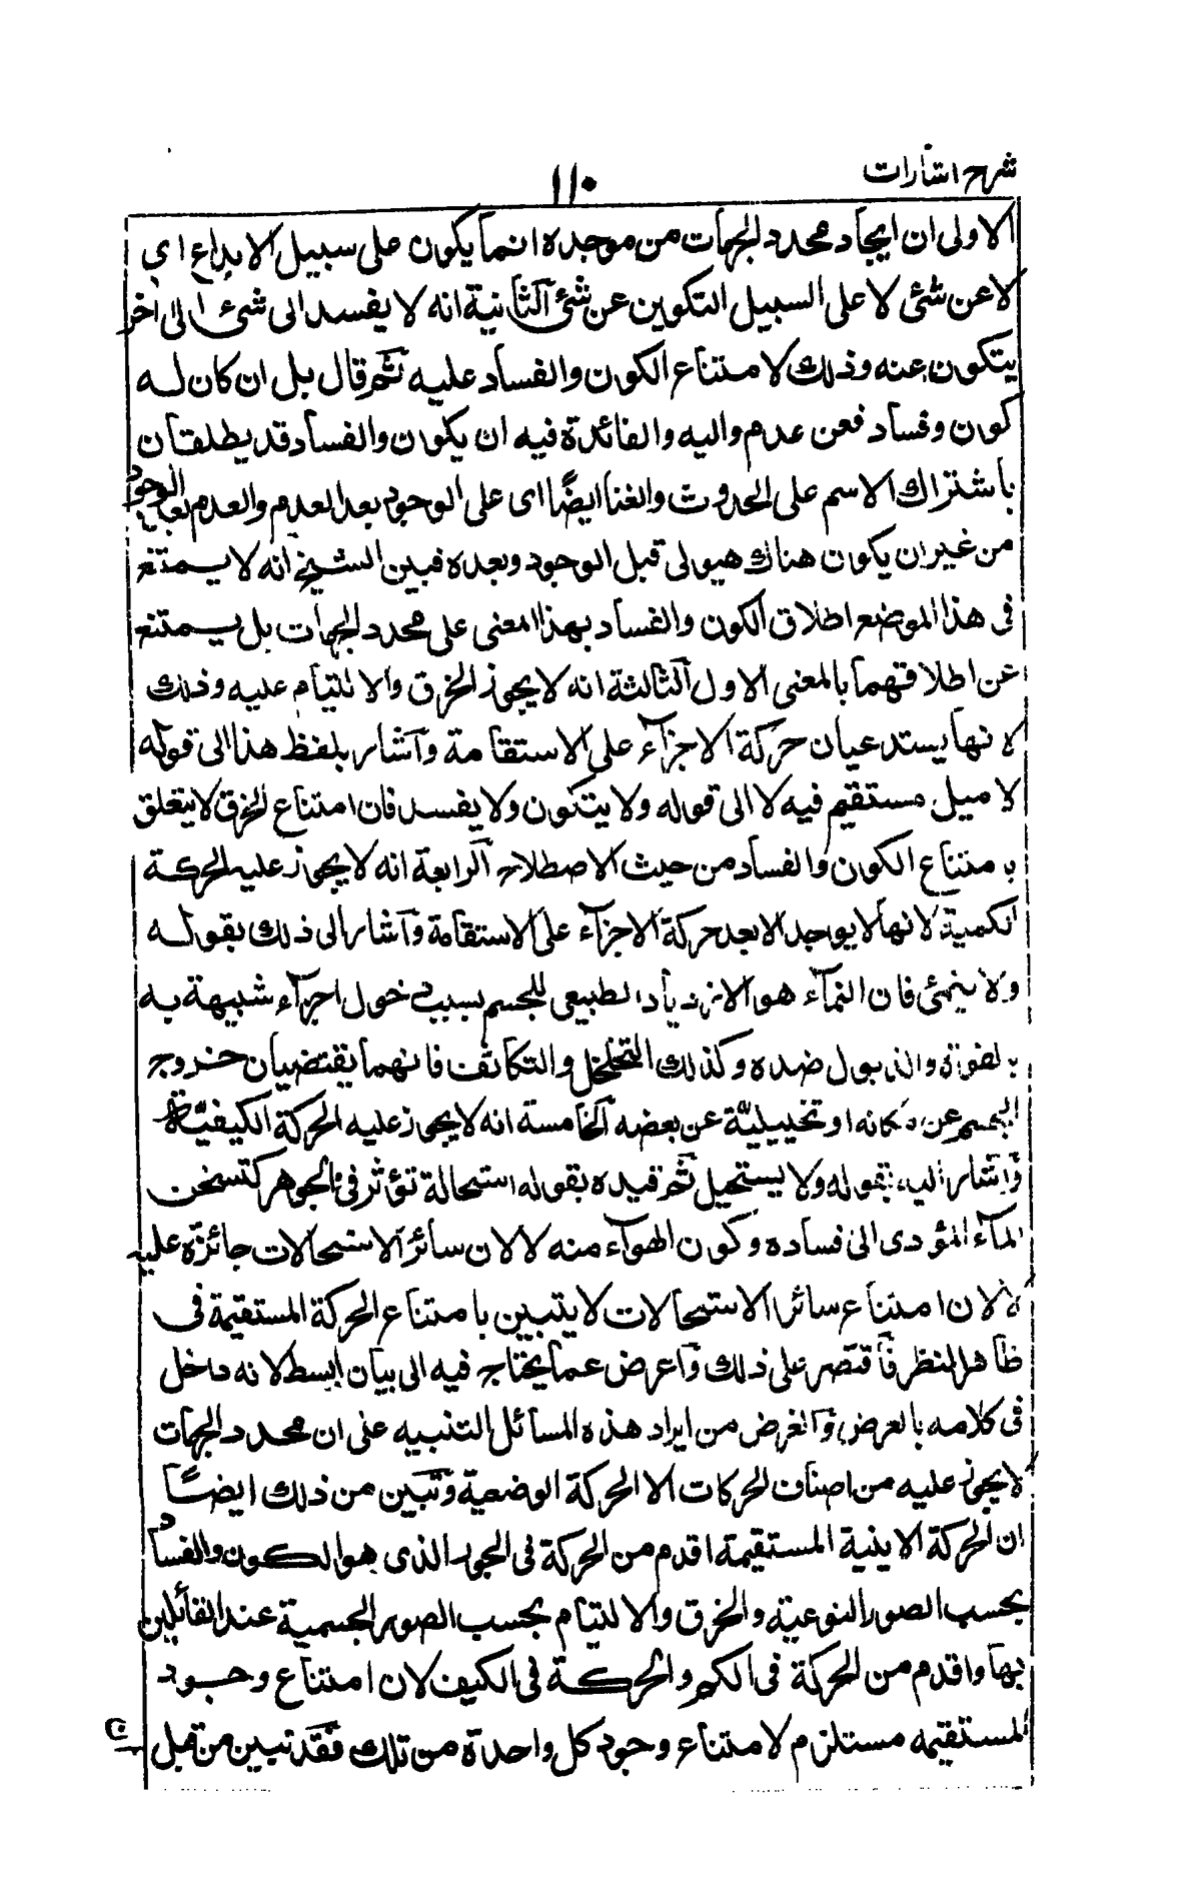 شرح اشارات
۱۱۰
الاولى ان ايجاد محدد الجهات من موجده انما يكون على سبيل الابداع اى
لا عن شئ لا على السبيل التكوين عن شئ الثانية انه لا يفسد الى شئ اخر
يتكون عنه وذلك لامتناع الكون والفساد عليه ثم قال بل ان كان له
كون وفساد فعن عدم واليه والفائدة فيه ان يكون والفساد قد يطلقان
باشتراك الاسم على الحدوث والفنا ايضًا اى على الوجود بعد العدم والعدم بعد الوجود
من غير ان يكون هناك هيولى قبل الوجود وبعده فبين الشيخ انه لا يمتنع
فى هذا الموضع اطلاق الكون والفساد بهذا المعنى على محدد الجهات بل يمتنع
عن اطلاقهما بالمعنى الاول الثالثة انه لا يجوز الخرق والالتيام عليه وذلك
لانها يستدعيان حركة الاجزآء على الاستقامة واشار بلفظ هذا الى قوله
لا ميل مستقيم فيه لا الى قوله ولا يتكون ولا يفسد فان امتناع الخرق لا يتعلق
بامتناع الكون والفساد من حيث الاصطلاح الرابعة انه لا يجوز عليه الحركة
الكمية لانها لا يوجد الا بعد حركة الاجزآء على الاستقامة واشار الى ذلك بقوله
ولا ينمئ فان النمآء هو الازدياد الطبيعى للجسم بسبب دخول اجزآء شبيهة به
بالقوة والذبول ضده وكذلك التخلخل والتكاثف فانهما يقتضيان خروج
الجسم عن مكانه او تخييليّة عن بعضه الخامسة انه لا يجوز عليه الحركة الكيفيّة
واشار اليه بقوله ولا يستحيل ثم قيده بقوله استحالة تؤثر فى الجوهر كتسخن
المآء المؤدى الى فساده وكون الهوآء منه لا لان سائر الاستحالات جائزة عليه
لا لان امتناع سائر الاستحالات لا يتبين بامتناع الحركة المستقيمة فى
ظاهر النظر فاقتصر على ذلك واعرض عما يحتاج فيه الى بيان ابسط لانه داخل
فى كلامه بالعرض والغرض من ايراد هذه المسائل التنبيه على ان محدد الجهات
لا يجوز عليه من اصناف الحركات الا الحركة الوضعية وتبين من ذلك ايضًا
ان الحركة الاينية المستقيمة اقدم من الحركة فى الجوهر الذى هو الكون والفساد
بحسب الصور النوعية والخرق والالتيام بحسب الصور الجسمية عند القائلين
بها واقدم من الحركة فى الكم والحركة فى الكيف لان امتناع وجود
المستقيمه مستلزم لامتناع وجود كل واحدة من تلك فقد تبين من قبل